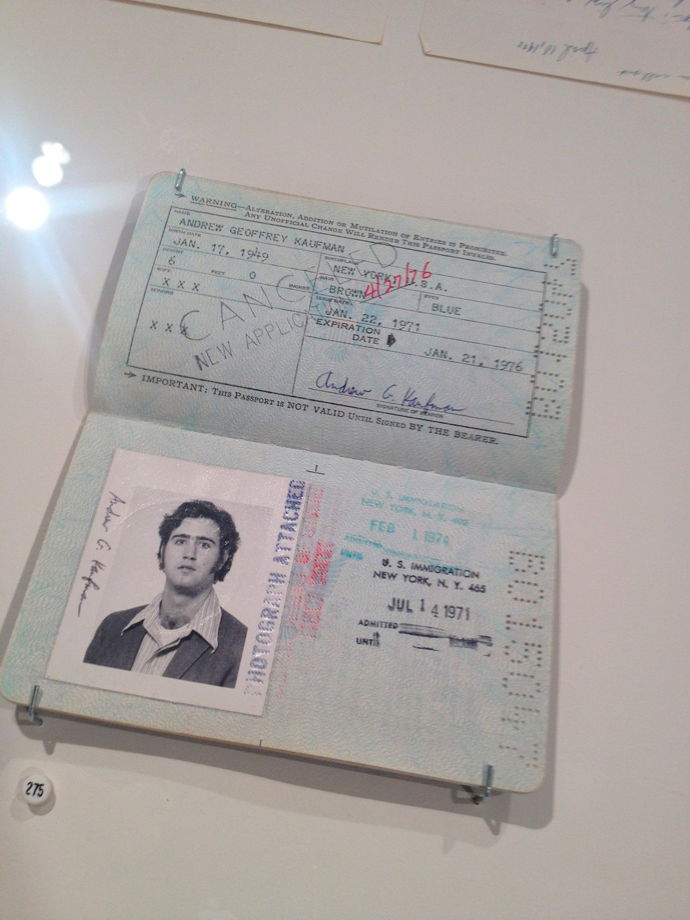 April 18, 1972
WARNING—ALTERATION, ADDITION OR MUTILATION OF ENTRIES IS PROHIBITED.
ANY UNOFFICIAL CHANGE WILL RENDER THIS PASSPORT INVALID.
NAME
ANDREW GEOFFREY KAUFMAN
BIRTH DATE
JAN. 17, 1949
BIRTHPLACE
NEW YORK, U.S.A.
HEIGHT
6 FEET 0 INCHES
HAIR
BROWN
EYES
BLUE
4/27/76
WIFE
X X X
ISSUE DATE
JAN. 22, 1971
MINORS
X X X
EXPIRATION
DATE
JAN. 21, 1976
CANCELED
NEW APPLICATION
Andrew G. Kaufman
SIGNATURE OF BEARER
IMPORTANT: THIS PASSPORT IS NOT VALID UNTIL SIGNED BY THE BEARER.
Andrew G. Kaufman
PHOTOGRAPH ATTACHED
U. S. IMMIGRATION
NEW YORK, N. Y.
FEB 1 1974
ADMITTED
UNTIL
U. S. IMMIGRATION
NEW YORK, N. Y. 465
JUL 14 1971
ADMITTED
UNTIL
275